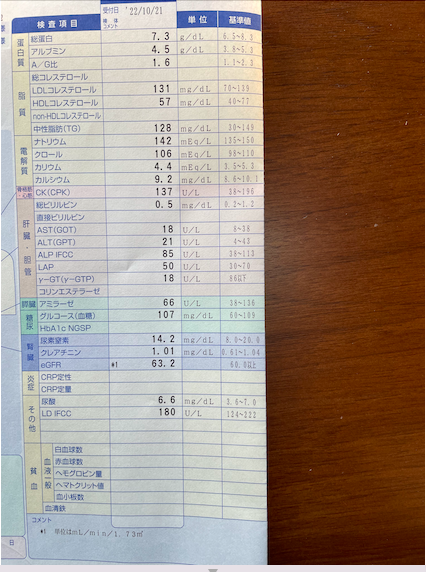 受付日 '22/10/21
検査項目 検体コメント 単位 基準値
蛋白質
総蛋白 7.3 g/dL 6.5~8.2
アルブミン 4.5 g/dL 3.8~5.3
A/G比 1.6 1.1~2.3
脂質
総コレステロール
LDLコレステロール 131 mg/dL 70~139
HDLコレステロール 57 mg/dL 40~77
non-HDLコレステロール
中性脂肪(TG) 128 mg/dL 30~149
電解質
ナトリウム 142 mEq/L 135~150
クロール 106 mEq/L 98~110
カリウム 4.4 mEq/L 3.5~5.3
カルシウム 9.2 mg/dL 8.6~10.1
骨格筋・心筋
CK(CPK) 137 U/L 38~196
肝臓・胆管
総ビリルビン 0.5 mg/dL 0.2~1.2
直接ビリルビン
AST(GOT) 18 U/L 8~38
ALT(GPT) 21 U/L 4~43
ALP IFCC 85 U/L 38~113
LAP 50 U/L 30~70
γ-GT(γ-GTP) 18 U/L 86以下
コリンエステラーゼ
膵臓
アミラーゼ 66 U/L 38~136
糖尿
グルコース(血糖) 107 mg/dL 60~109
HbA1c NGSP
腎臓
尿素窒素 14.2 mg/dL 8.0~20.0
クレアチニン 1.01 mg/dL 0.61~1.04
eGFR *1 63.2 60.0以上
炎症
CRP定性
CRP定量
その他
尿酸 6.6 mg/dL 3.6~7.0
LD IFCC 180 U/L 124~222
貧血
血液一般
白血球数
赤血球数
ヘモグロビン量
ヘマトクリット値
血小板数
血清鉄
コメント
*1 単位はmL/min/1.73㎡
日